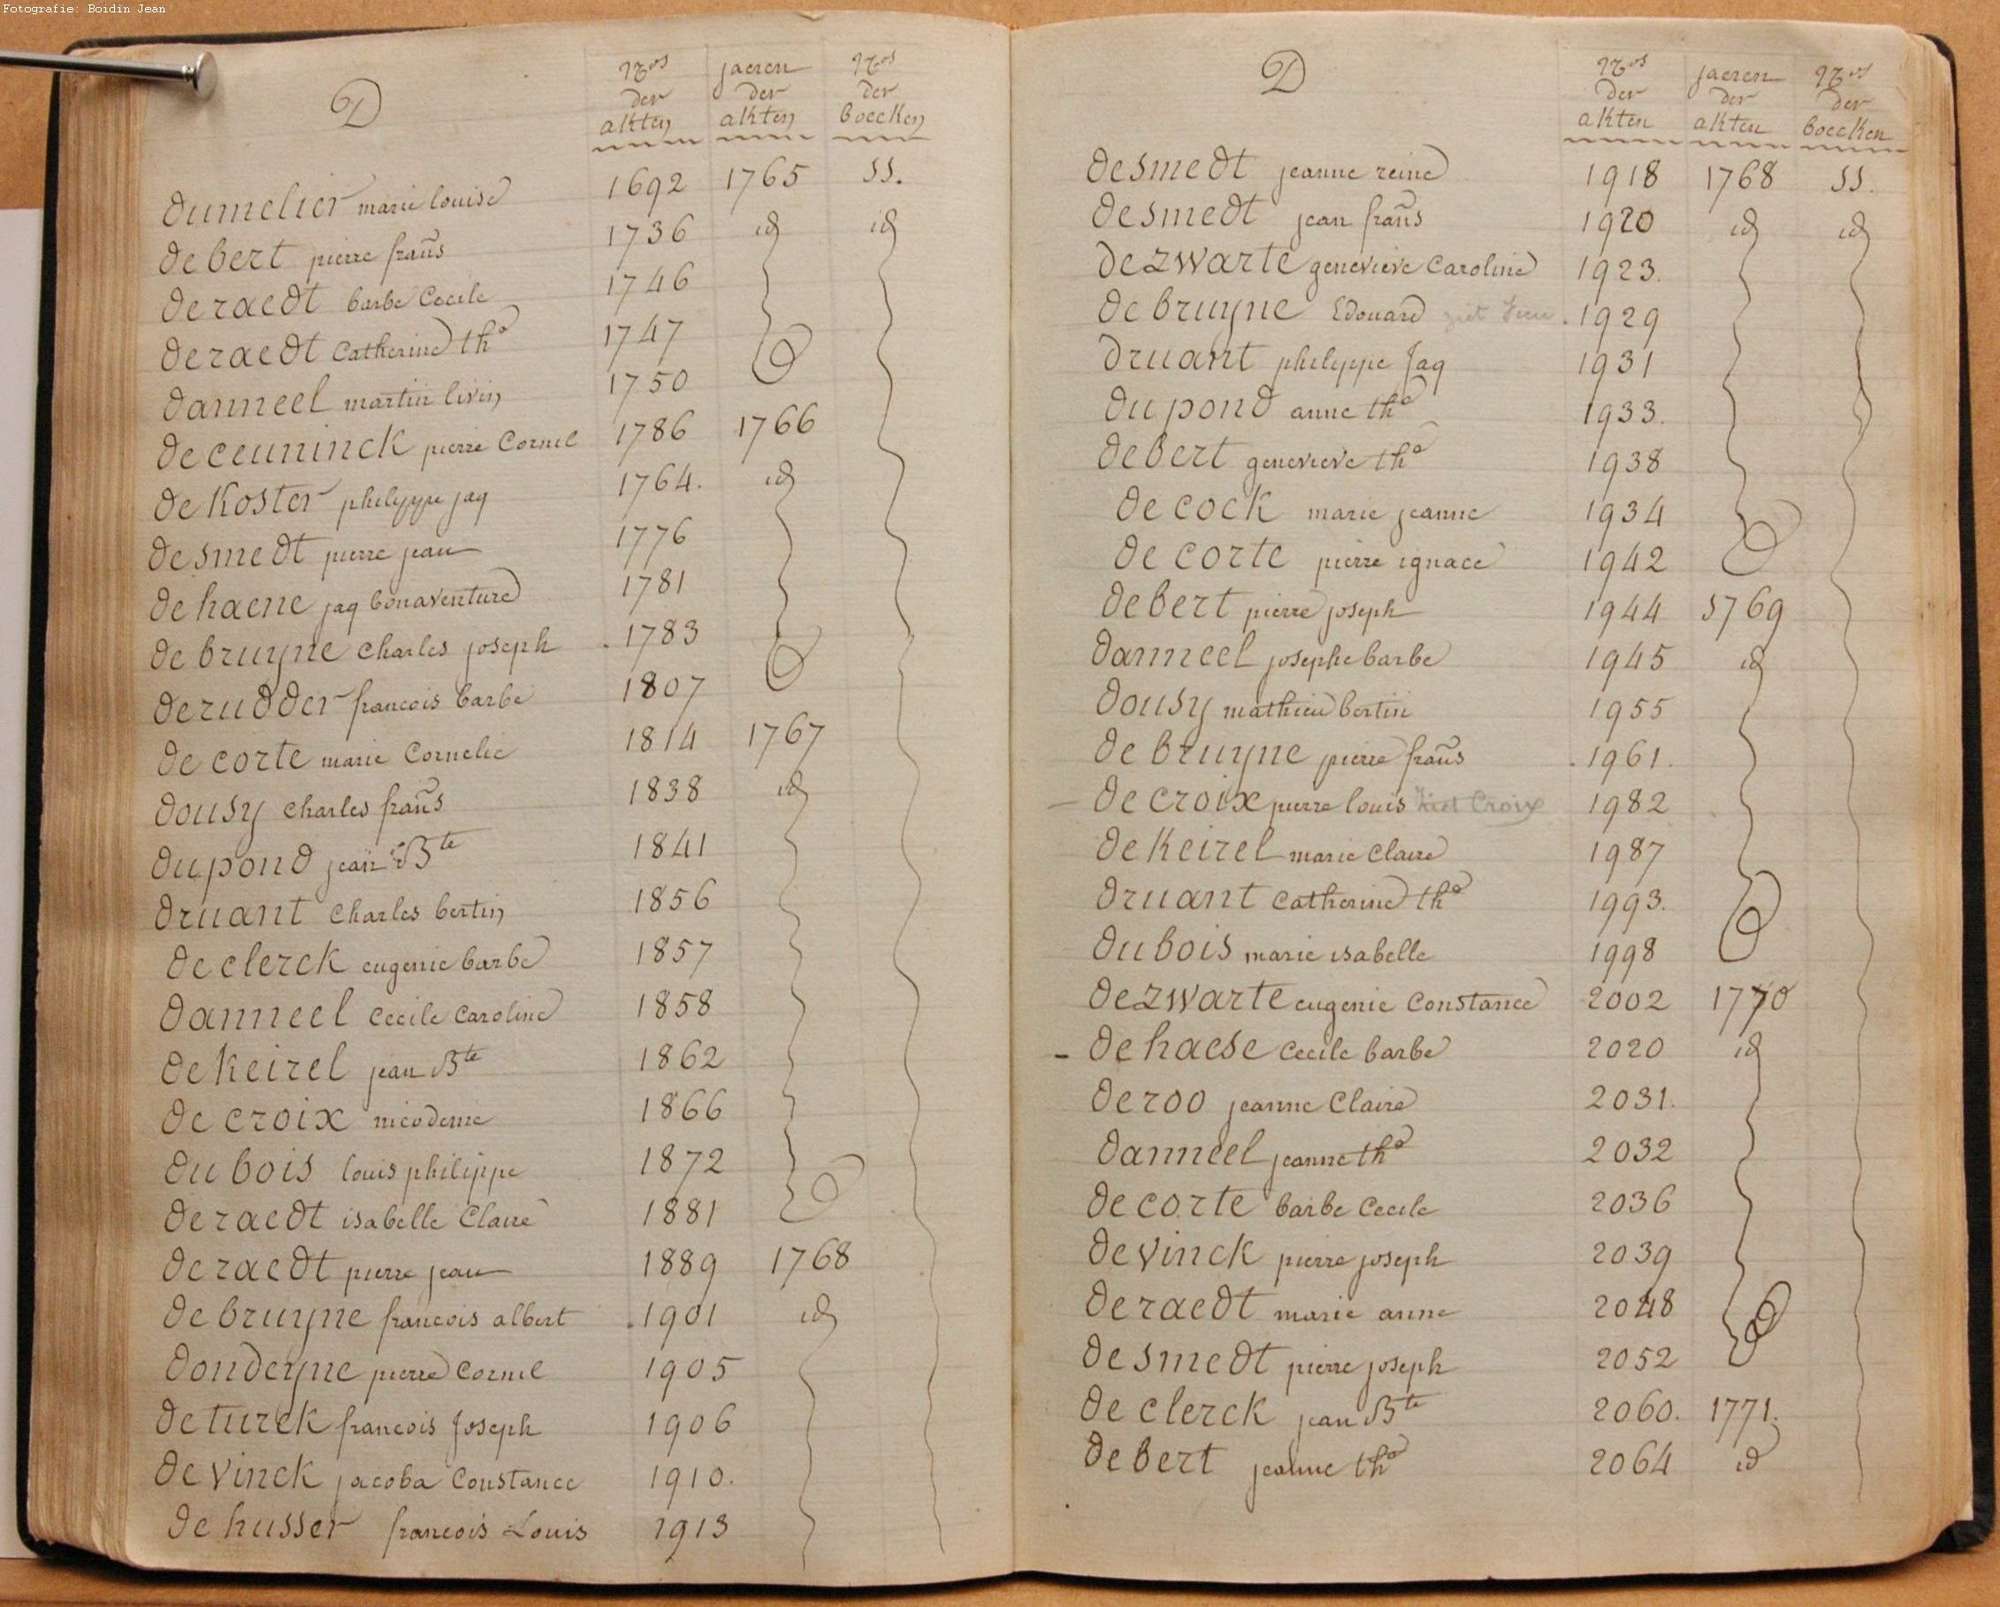 Fotografie: Boidin Jean
D
Nros der akten
jaeren der akten
Nros der boecken
dumelier marie louise 1692 1765 55.
debert pierre frans̃ 1736 id id
deraedt barbe Cecile 1746
deraedt Catherine the 1747
danneel martin livin 1750
deceuninck pierre Cornil 1786 1766
dekoster philippe jaq 1764. id
desmedt pierre jean 1776
dehaene jaq bonaventure 1781
debruyne Charles joseph . 1783
derudder francois barbe 1807
decorte marie Cornelie 1814 1767
dousy Charles frans̃ 1838 id
dupond jean Bte 1841
druant Charles bertin 1856
declerck eugenie barbe 1857
danneel Cecile Caroline 1858
dekeirel jean Bte 1862
decroix nicodeme 1866
dubois louis philippe 1872
deraedt isabelle Claire 1881
deraedt pierre jean 1889 1768
debruyne francois albert . 1901 id
dondeyne pierre Cornil 1905
deturck francois Joseph 1906
devinck jacoba Constance 1910.
dehusser francois Louis 1913
D
Nros der akten
jaeren der akten
Nros der boecken
desmedt jeanne reine 1918 1768 55.
desmedt jean frans̃ 1920 id id
dezwarte genevieve Caroline 1923.
debruyne Edouard ziet . 1929
druant philippe Jaq 1931
dupond anne the 1933.
debert genevieve the 1938
decock marie jeanne 1934
decorte pierre ignace 1942
debert pierre joseph 1944 1769
danneel josephe barbe 1945 id
dousy mathieu bertin 1955
debruyne pierre frans̃ . 1961.
– decroix pierre louis ziet Croix 1982
dekeirel marie Claire 1987
druant Catherine the 1993.
dubois marie isabelle 1998
dezwarte eugenie Constance 2002 1770
- dehaese Cecile barbe 2020 id
deroo jeanne Claire 2031.
danneel jeanne the 2032
decorte barbe Cecile 2036
devinck pierre joseph 2039
deraedt marie anne 2048
desmedt pierre joseph 2052
declerck jean Bte 2060. 1771.
debert jeanne the 2064 id